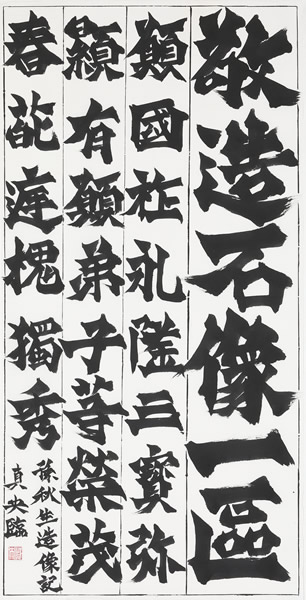 敬造石像一區
願國祚永隆三寶弥
顯有願弟子等榮茂
春葩遟槐獨秀
孫秋生造像記
真央臨